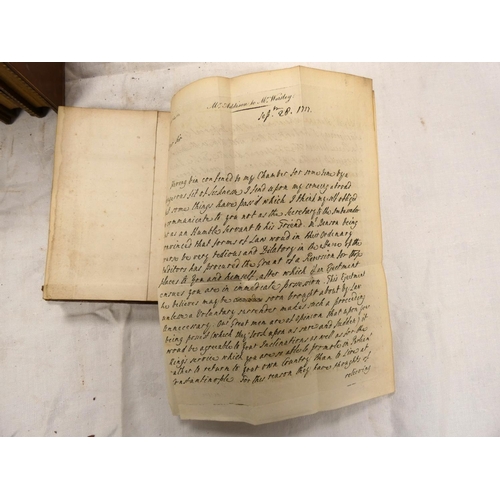 Mr. Addison to Mr. Wortley
Sepr. 28. 1717.
Sir
Having been confined to my Chamber for some time by a
dangerous fit of sickness I find upon my coming abroad
that some things have pass'd which I think my self obliged
to communicate to you not as the Secretary to the Ambassador
but as an Humble Servant to his Friend. Mr. Benson being
convinced that forms of Law woud in their Ordinary
course be very tedious and Dilatory in the Affair of the
Auditors has procured the Grant of a Reversion for those
places to You and himself, after which if an Ejectment
ensues you are in immediate possession. This Ejectment
he believes may be soon brought about by Law
unless a Voluntary Surrender makes such a proceeding
Unnecessary. Our Great men are of opinion that upon your
being possest (which they look upon as sure and sudden) it
woud be agreeable to your Inclinations as well as for the
Kings service which you are so able to promote in Parliament
rather to return to your own Country than to live at
Constantinople. For this reason they have thoughts of
relieving